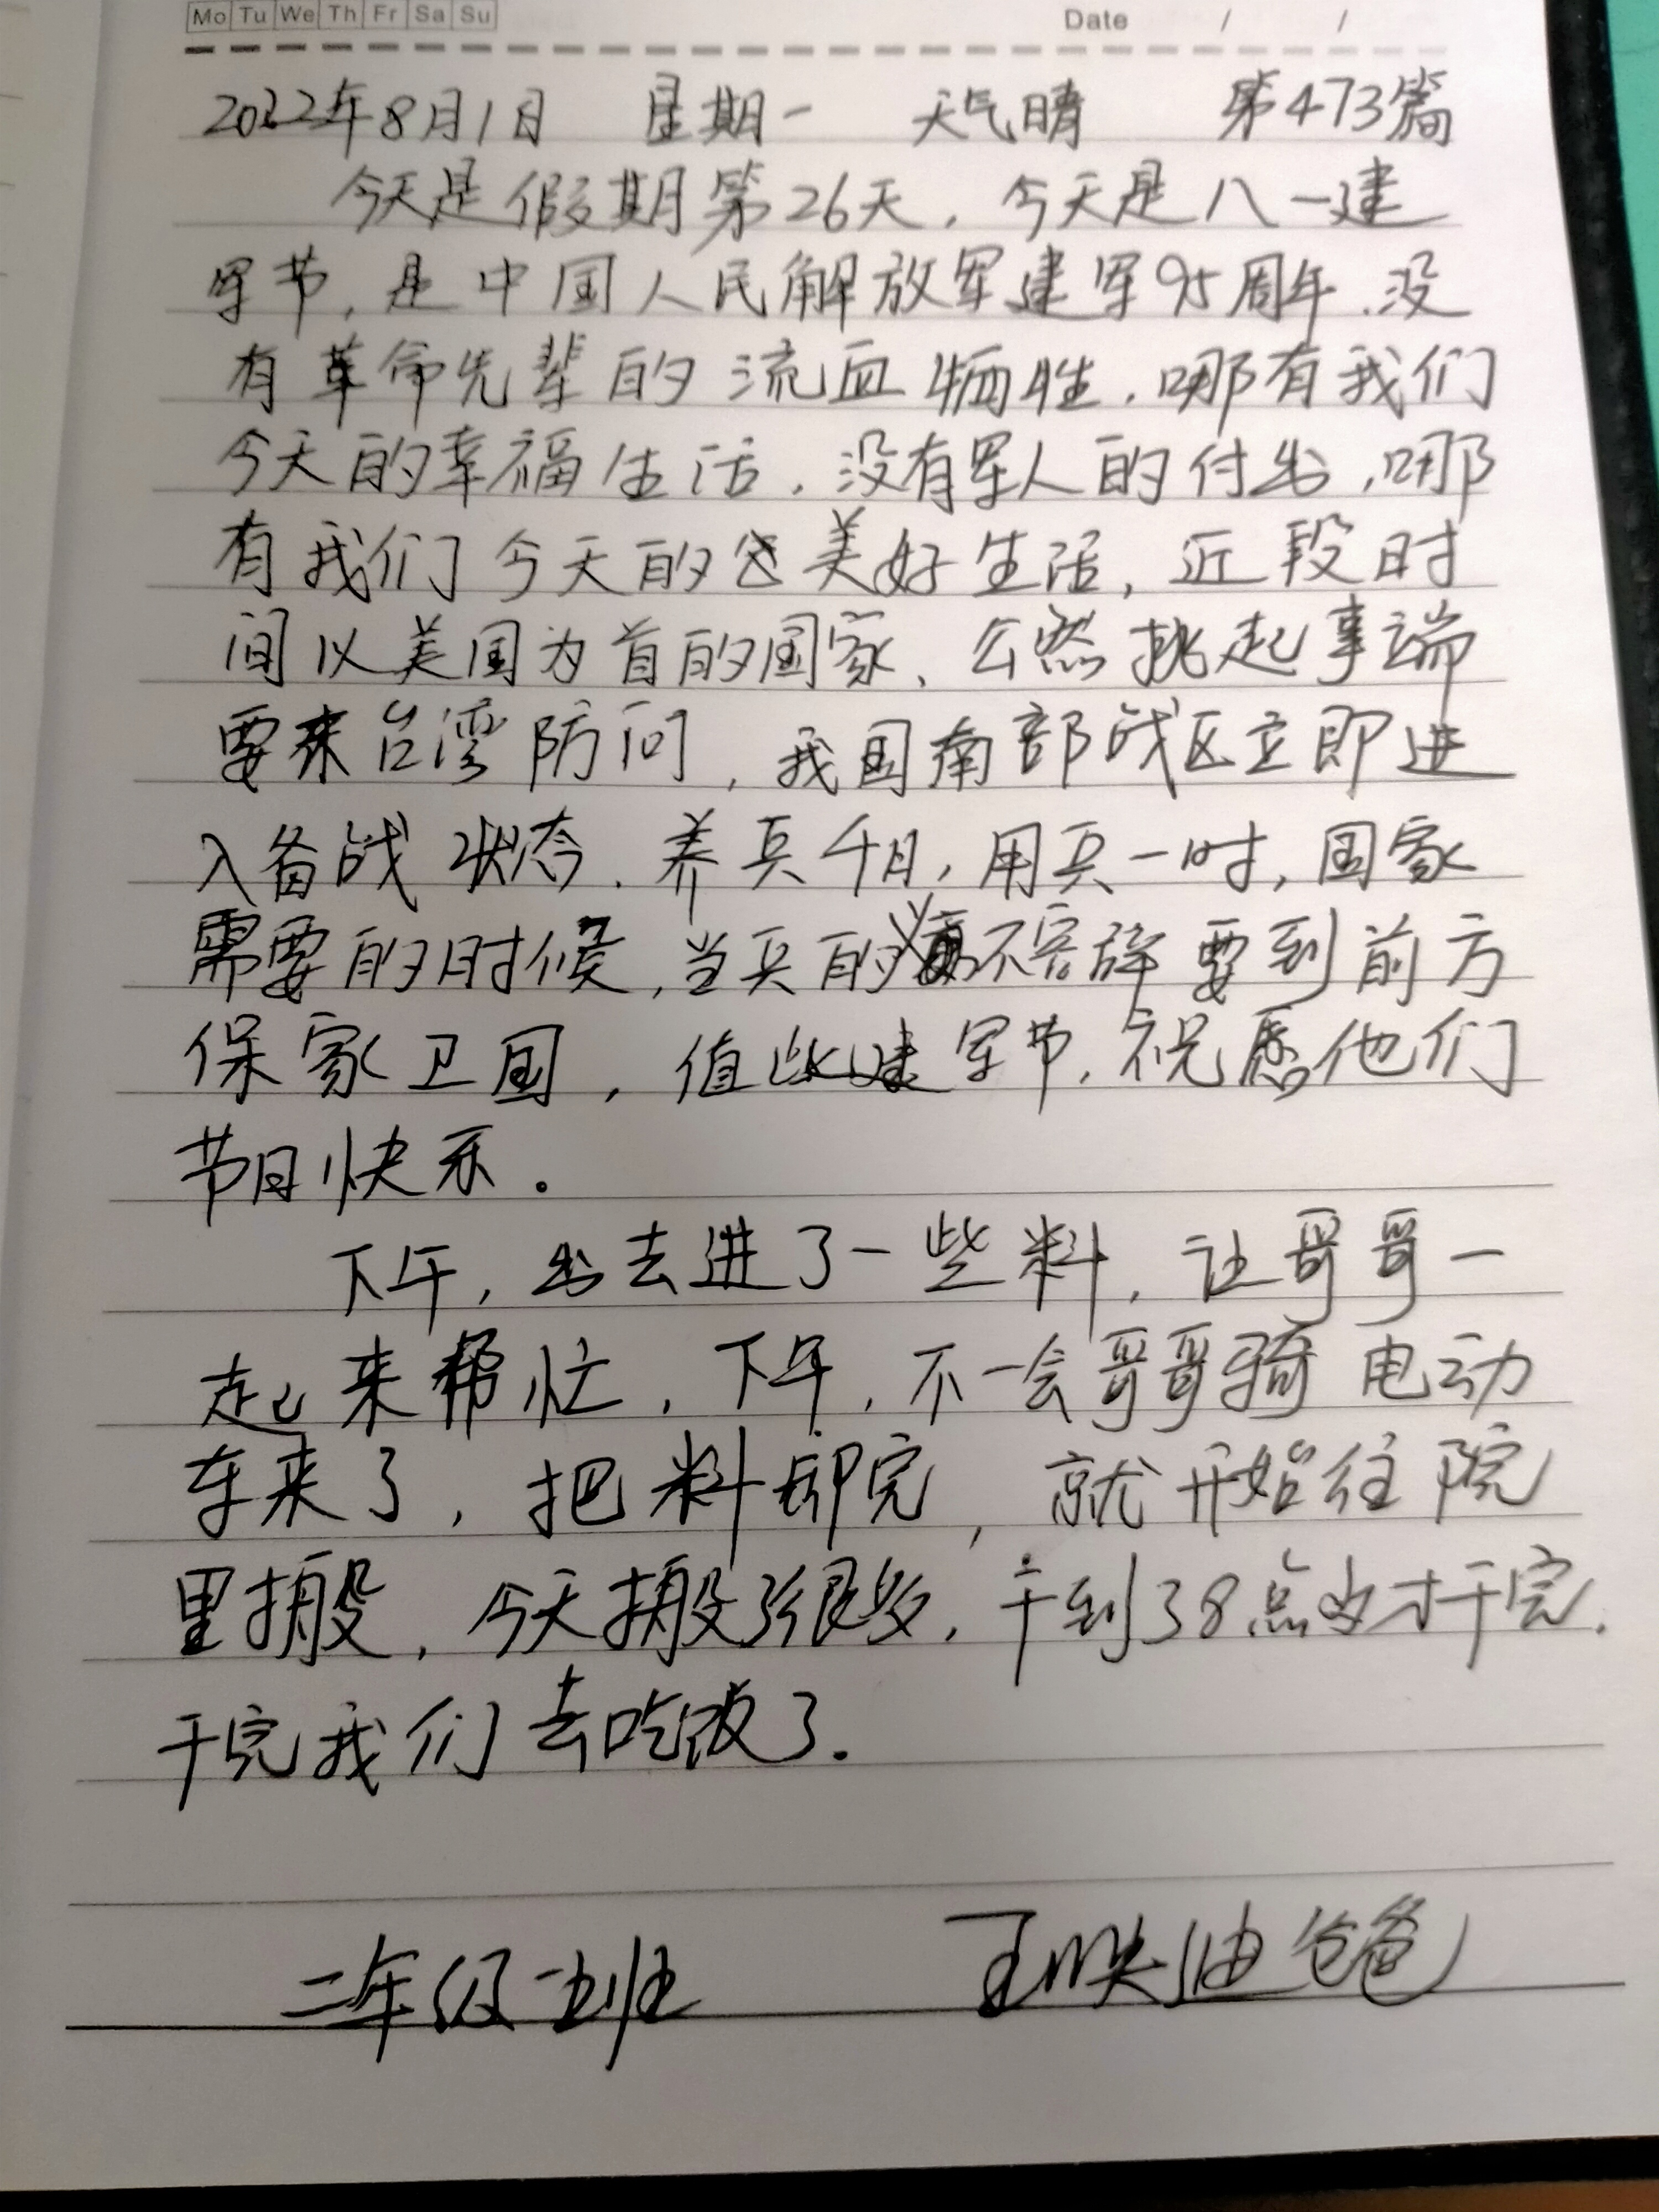 Mo Tu We Th Fr Sa Su Date / /
2022年8月1日 星期一 天气晴 第473篇
今天是假期第26天,今天是八一建
军节,是中国人民解放军建军95周年.没
有革命先辈的流血牺牲,哪有我们
今天的幸福生活,没有军人的付出,哪
有我们今天的美好生活,近段时
间以美国为首的国家、公然挑起事端
要来台湾防问,我国南部战区立即进
入备战状态.养兵千日,用兵一时,国家
需要的时候,当兵的义不容辞要到前方
保家卫国,值此建军节,祝愿他们
节日快乐.
下午,出去进了一些料,让哥哥一
起来帮忙,下午,不一会哥哥骑电动
车来了,把料卸完,就开始往院
里搬,今天搬了很多,干到8点内才干完.
干完我们去吃饭了.
二年级一班 王映油爸爸